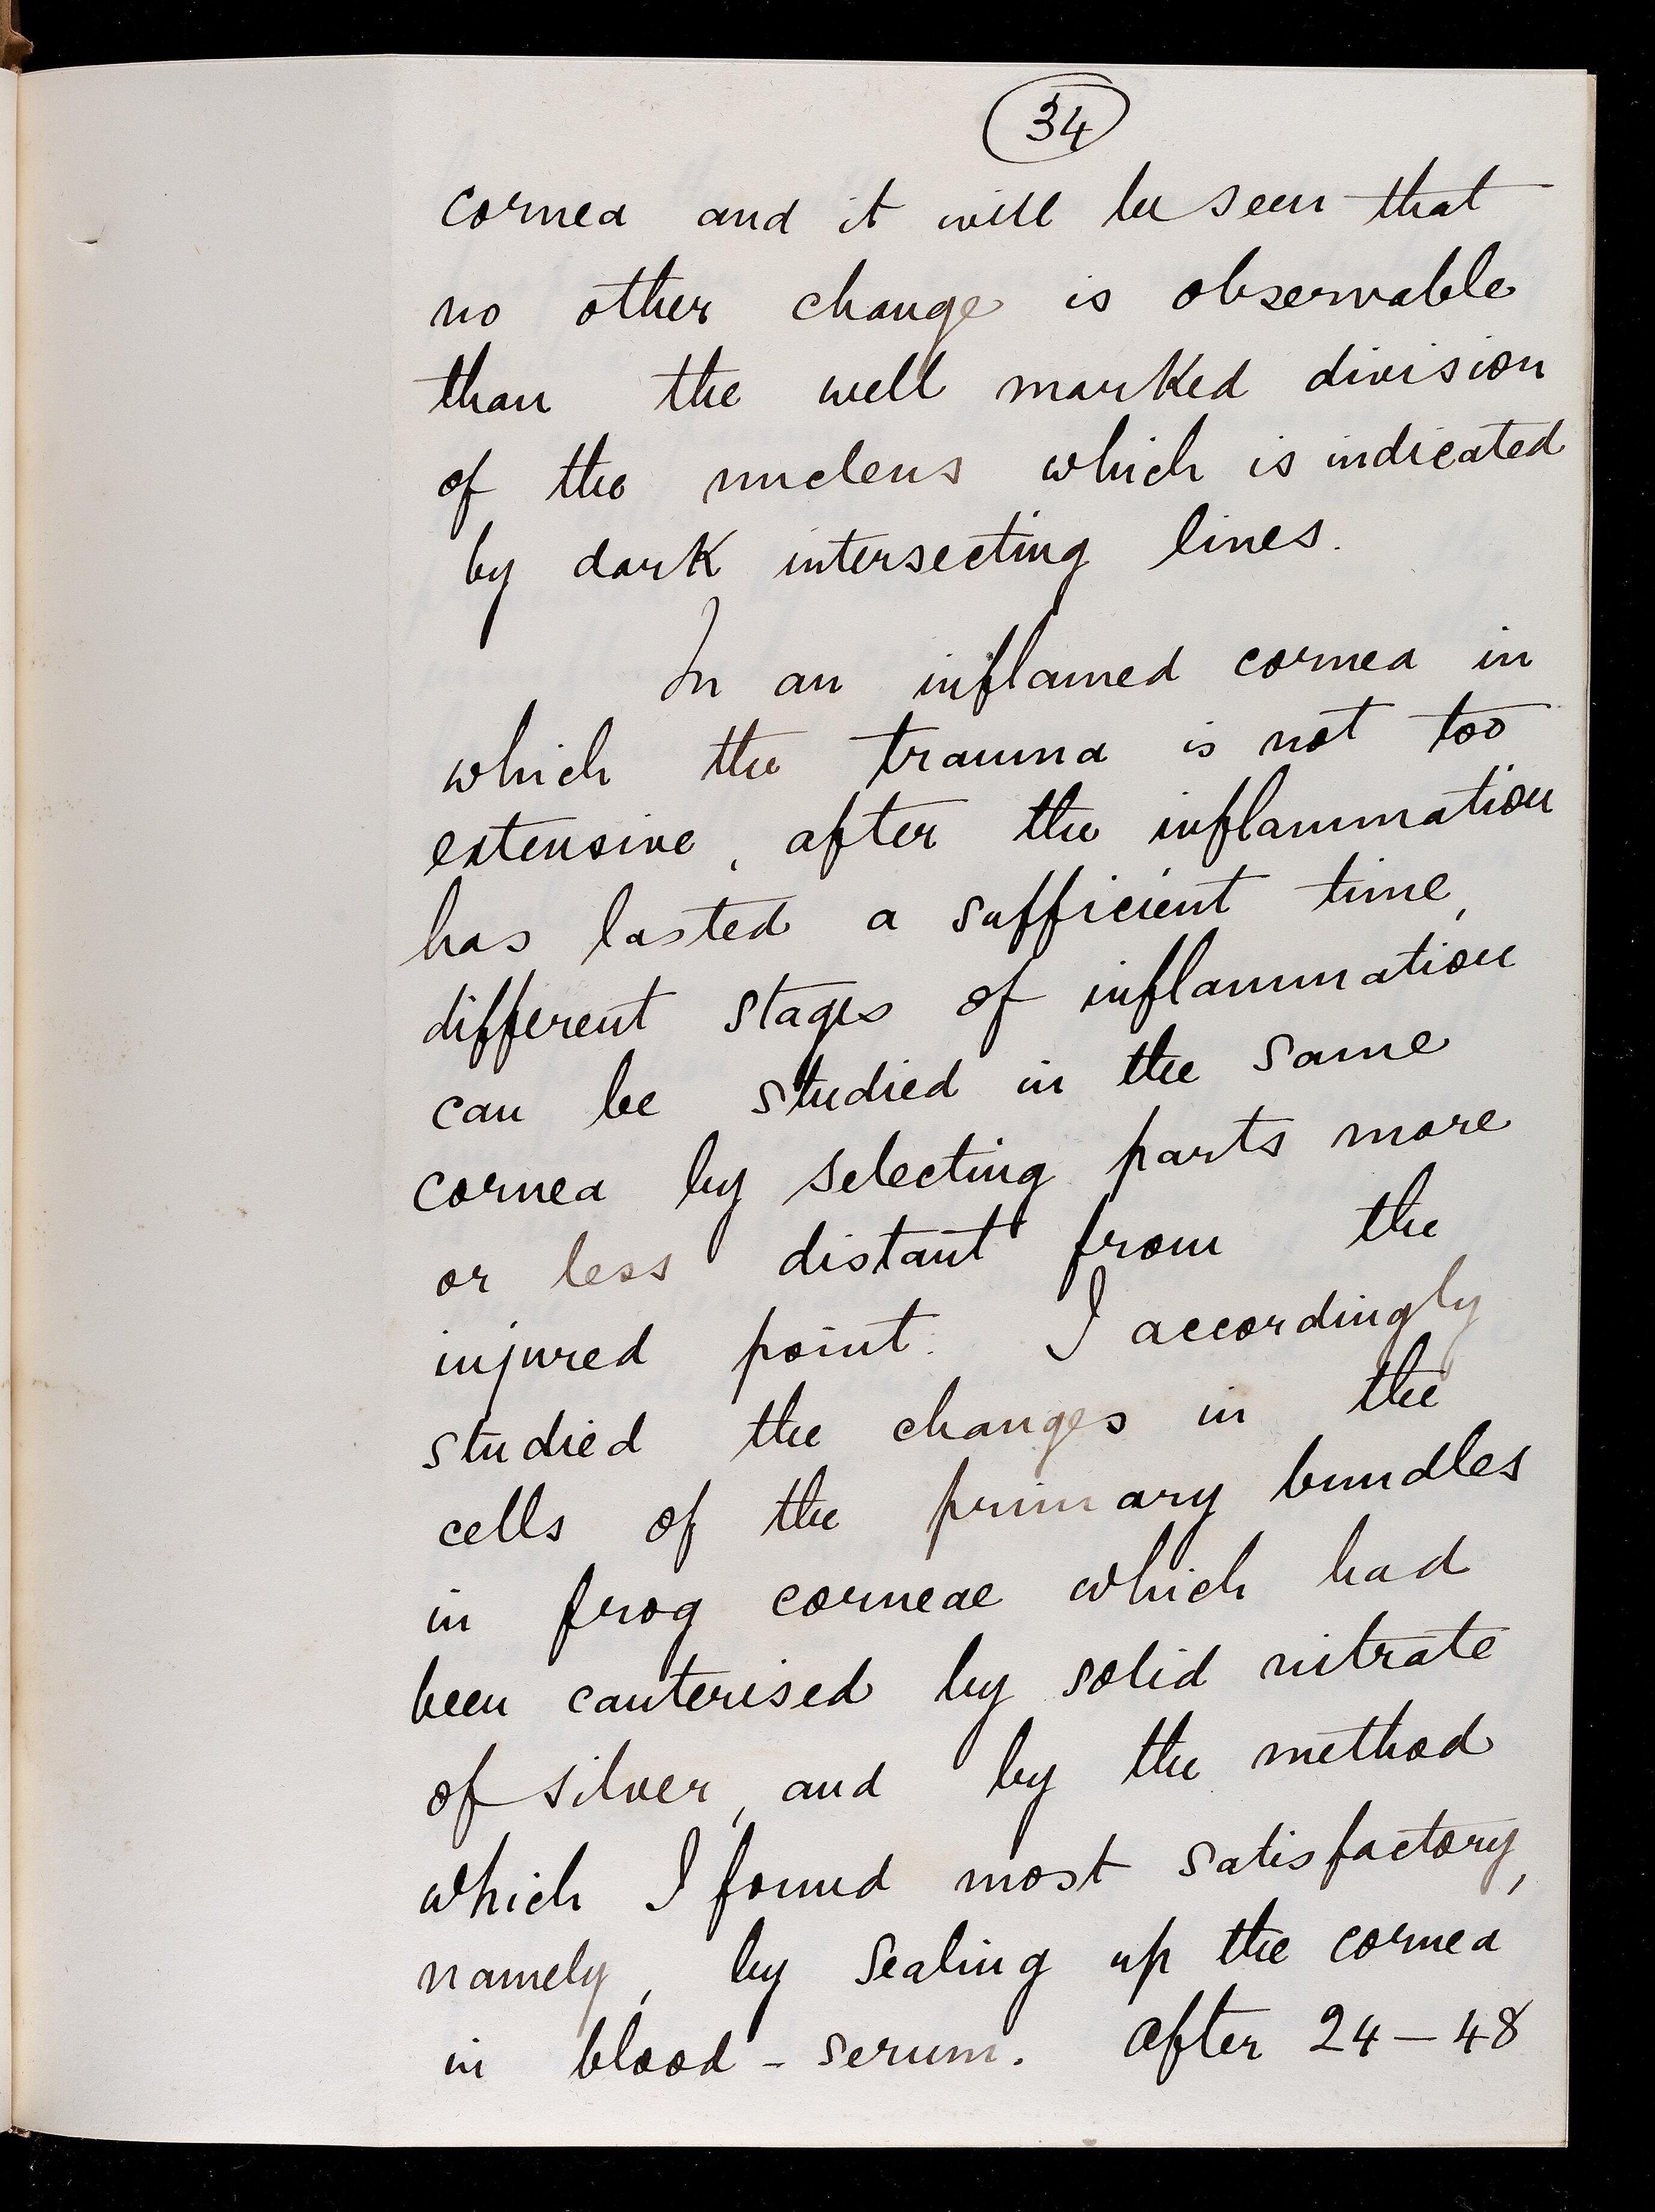 34
cornea and it will be seen that
no other change is observable
than the well marked division
of the nucleus which is indicated
by dark intersecting lines.
In an inflamed cornea in
which the trauma is not too
extensive, after the inflammation
has lasted a sufficient time,
different stages of inflammation
can be studied in the same
cornea by selecting parts more
or less distant from the
injured point. I accordingly
studied the changes in the
cells of the primary bundles
in frog corneae which had
been cauterised by solid nitrate
of silver, and by the method
which I found most satisfactory,
namely, by sealing up the cornea
in blood-serum. After 24-48